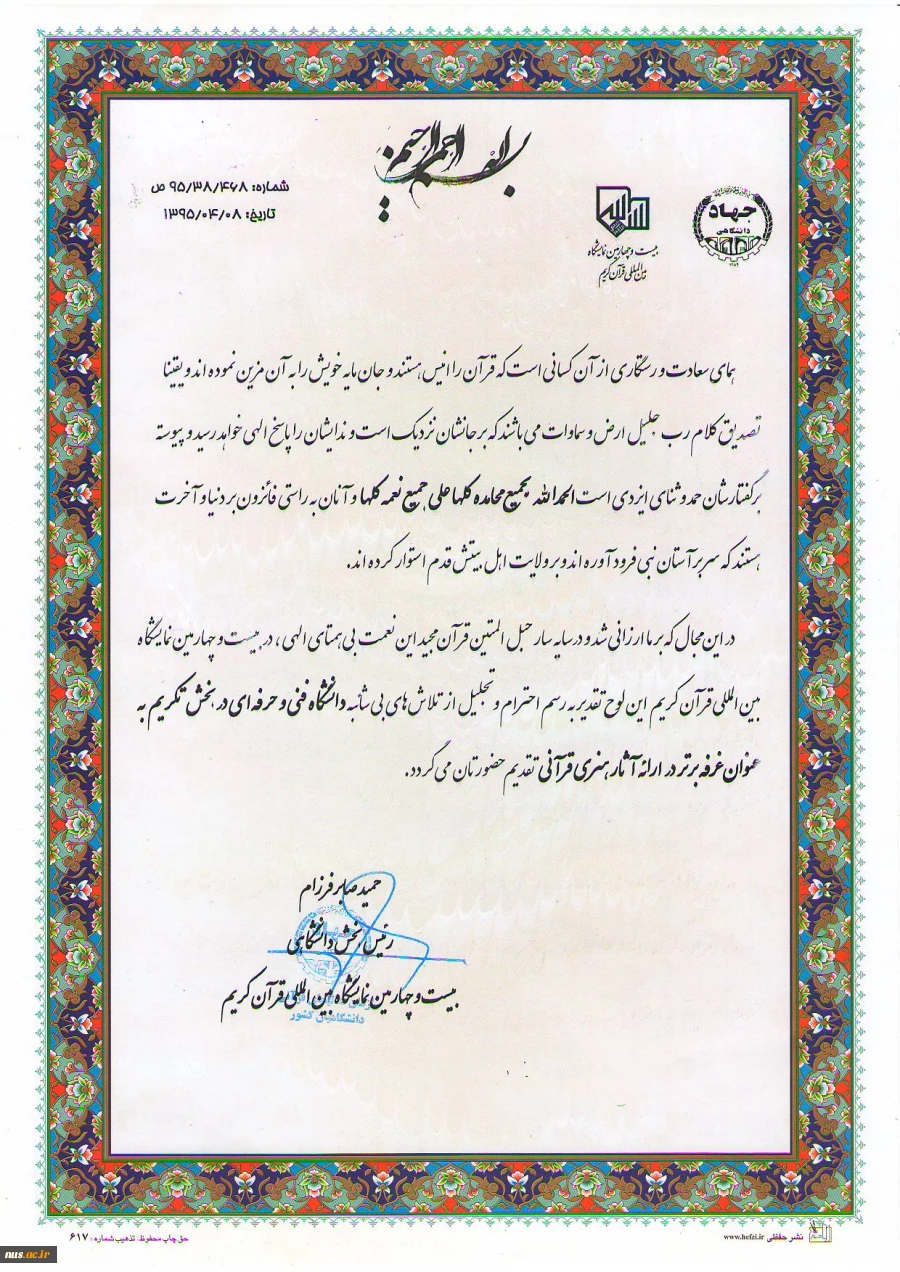 بسم الله الرحمن الرحیم
شماره: ۹۵/۳۸/۴۶۸ ص
تاریخ: ۱۳۹۵/۰۴/۰۸
جهاد
دانشگاهی
بیست و چهارمین نمایشگاه
بین المللی قرآن کریم
همای سعادت و رستگاری از آن کسانی است که قرآن را انیس هستند و جان مایه خویش را به آن مزین نموده اند و یقینا
تصدیق کلام رب جلیل ارض و سماوات می باشند که بر جانشان نزدیک است و ندایشان را پاسخ الهی خواهد رسید و پیوسته
بر گفتارشان حمد و ثنای ایزدی است الحمدالله بجمیع محامده کلها علی جمیع نعمه کلها و آنان به راستی فائزون بر دنیا و آخرت
هستند که سر بر آستان نبی فرود آورده اند و بر ولایت اهل بیتش قدم استوار کرده اند.
در این مجال که بر ما ارزانی شد و در سایه سار حبل المتین قرآن مجید این نعمت بی همتای الهی، در بیست و چهارمین نمایشگاه
بین المللی قرآن کریم این لوح تقدیر به رسم احترام و تجلیل از تلاش های بی شائبه دانشگاه فنی و حرفه ای در بخش تکریم به
عنوان غرفه برتر در ارائه آثار هنری قرآنی تقدیم حضورتان می گردد.
حمید صابر فرزام
رئیس بخش دانشگاهی
بیست و چهارمین نمایشگاه بین المللی قرآن کریم
دانشگاهیان کشور
نشر حفظی www.hefzi.ir
حق چاپ محفوظ. تذهیب شماره: ۶۱۷
nus.ac.ir